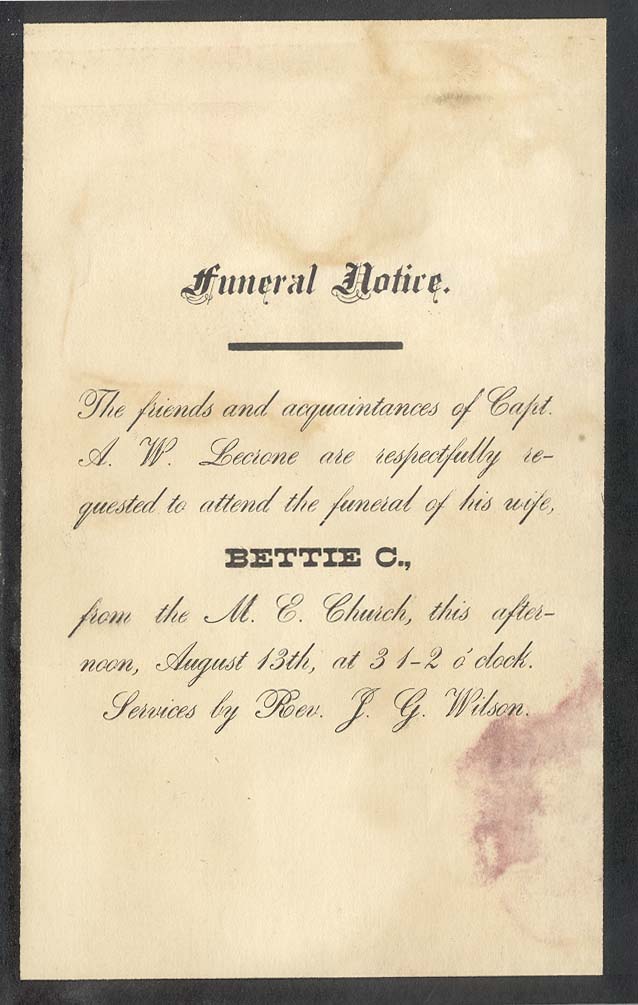 Funeral Notice.
The friends and acquaintances of Capt.
A. W. Lecrone are respectfully re-
quested to attend the funeral of his wife,
BETTIE C.,
from the M. E. Church, this after-
noon, August 13th, at 3 1-2 o'clock.
Services by Rev. J. G. Wilson.